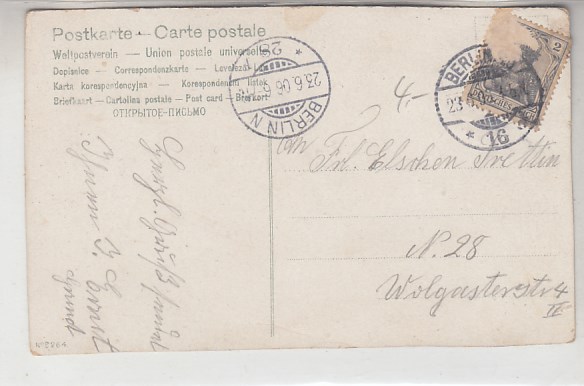 Postkarte - Carte postale
Weltpostverein - Union postale universelle
Dopisnice - Correspondenzkarte - Levelezö-Lap
Karta korespondencyjna - Korespondenčni listek
Briefkaart - Cartolina postale - Post card - Brefkort
ОТКРЫТОЕ ПИСЬМО
BERLIN N
23.6.06
28
BERLIN
16
2
4.-
Frl. Elschen Trettin
N. 28
Wolgasterstr 4
III
Herzl. Grüße sendet
Ihnen
Ernst